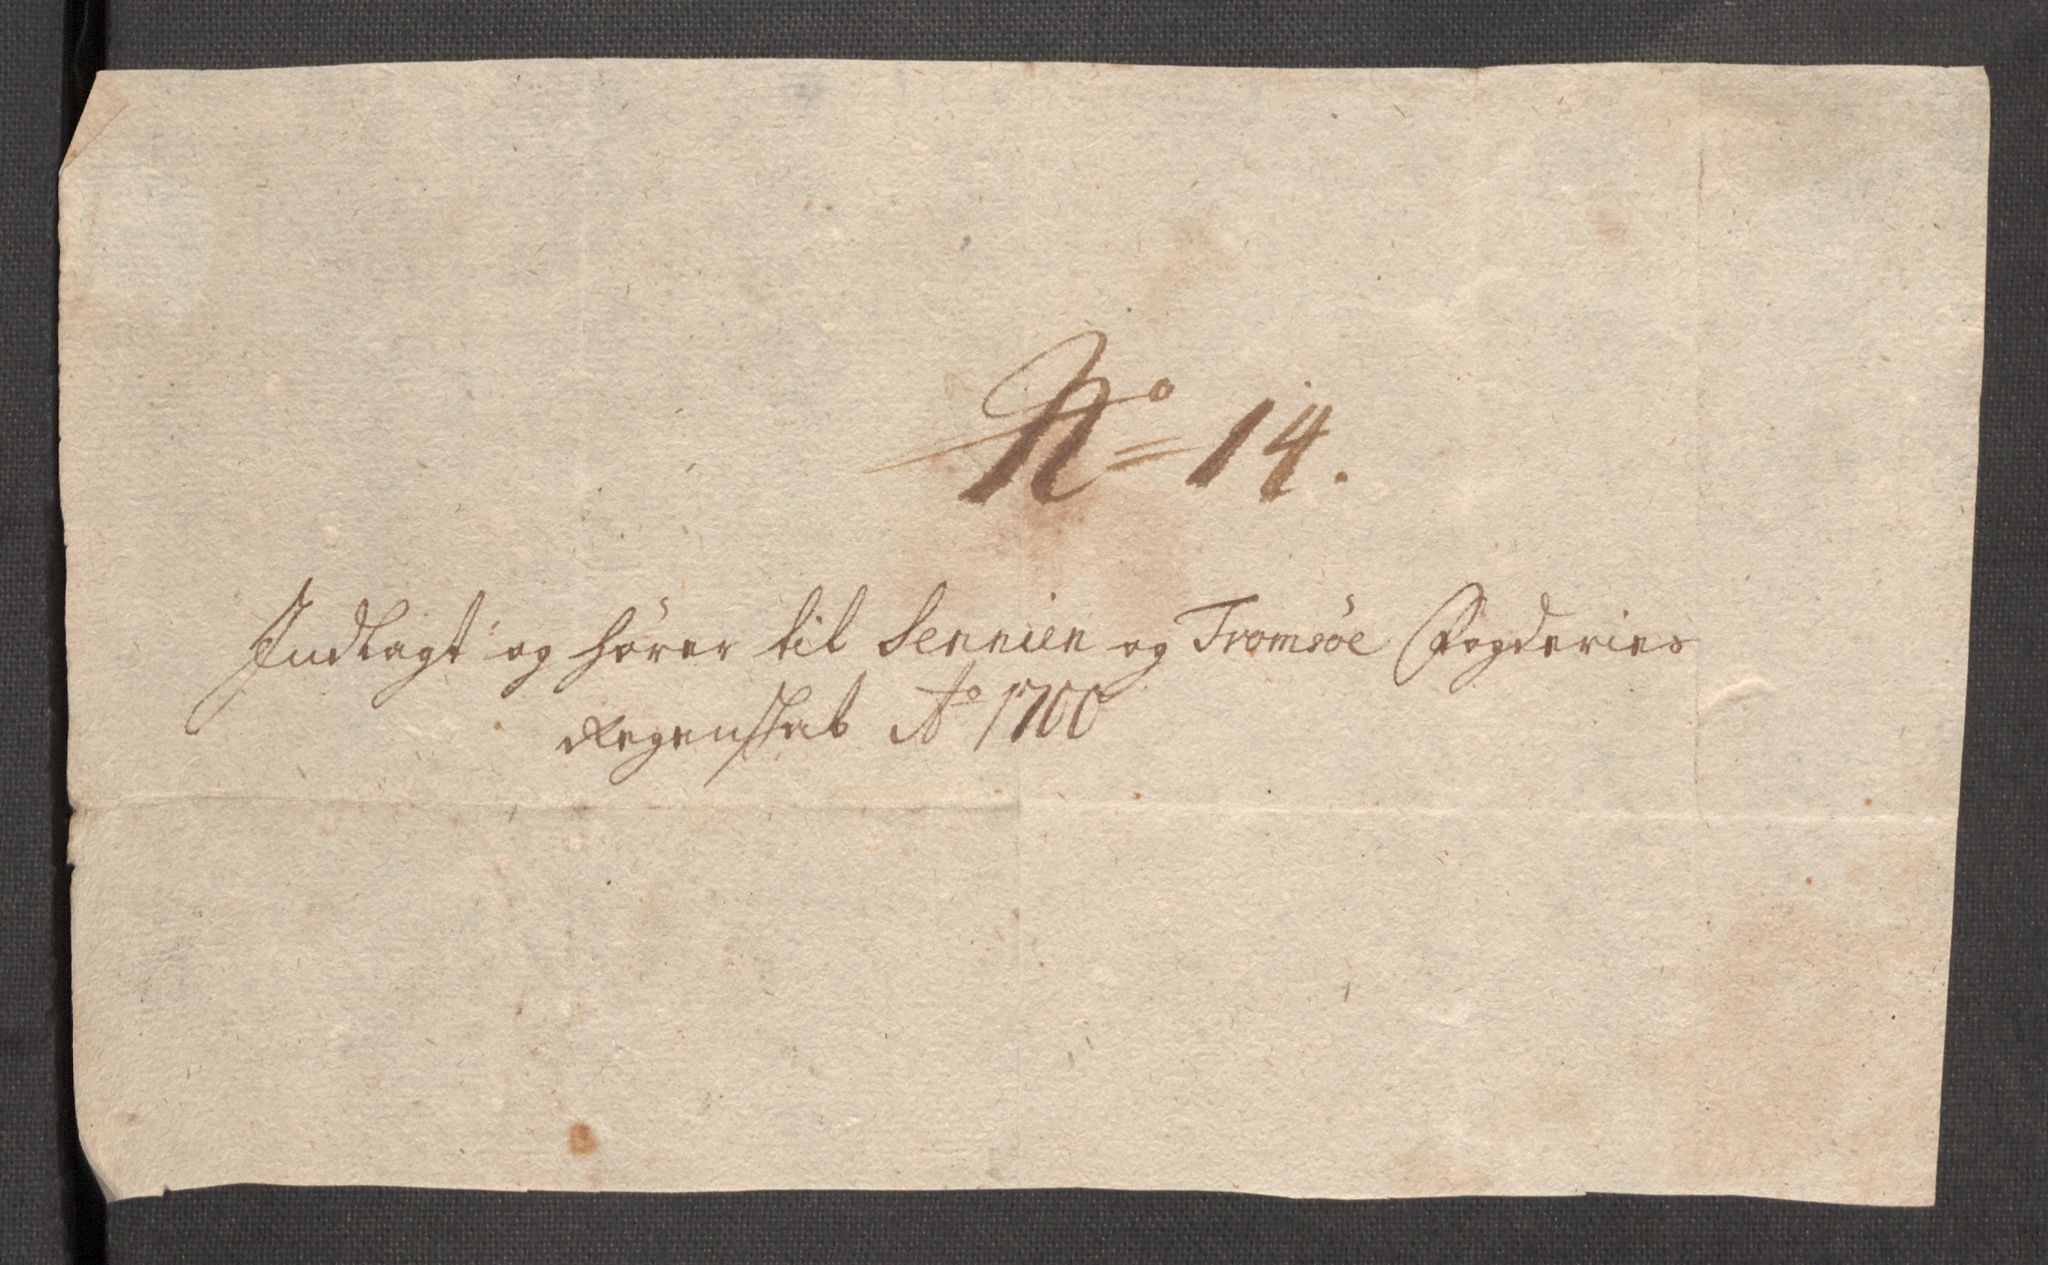 No 14.
Indlagt og hører til Sennien og Tromsøe Fogderies
Regenskab Ao 1700